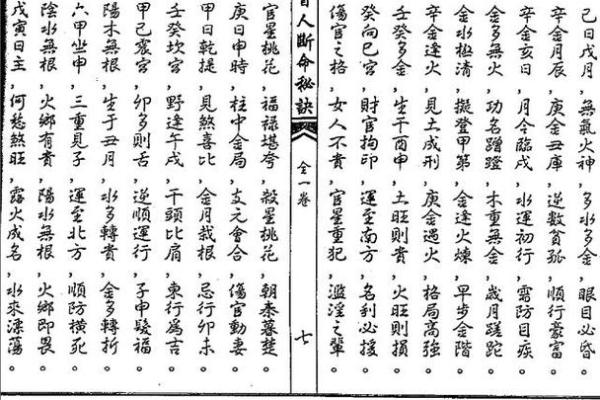 己日戌月,無氣火神,多水多金,眼目必昏。
辛金月辰,庚金丑庫,逆數貧孤,順行豪富。
辛金亥日,月令臨戌,水運初行,需防目疾。
金多無火,功名蹭蹬,木重無金,歲月蹉跎。
金水極清,擬登甲第,金逢火煉,早步金階。
辛金逢火,見土成刑,庚金遇火,格局高強。
壬癸多金,生于酉申,土旺則貴,火旺則損。
癸向巳宮,財官拘印,運至南方,名利必援。
傷官之格,女人不貴,官星重犯,濫淫之輩。
人斷命秘訣 全一卷 七
官星桃花,福祿堪夸,殺星桃花,朝秦暮楚。
庚日申時,柱中金局,支元會合,傷官動妻。
甲日乾提,見煞喜比,金月栽根,忌行卯未。
壬癸坎宮,野逢午戌,干頭比肩,東行為吉。
甲己震宮,卯多則舌,逆順運行,子申髮福。
陽木無根,生于丑月,水多轉貴,金多轉折。
六甲坐申,三重見子,運至北方,順防橫死。
陰水無根,火鄉有貴,陽水無根,火鄉即畏。
戊寅日主,何愁煞旺,露火成名,水來漂蕩。